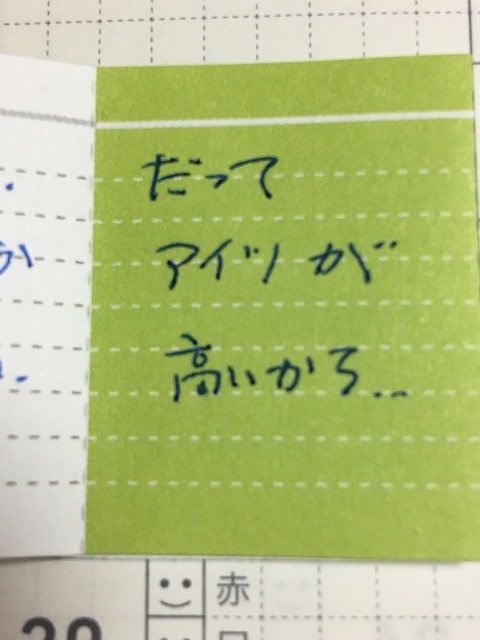 だって
アイツが
高いから...
か
赤